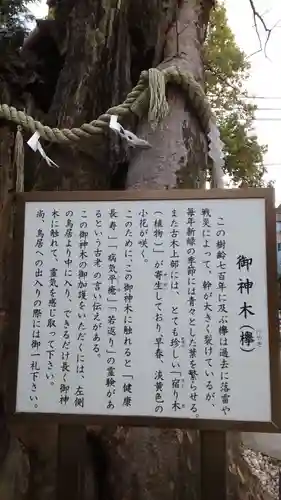 御神木(欅)
この樹齢七百年に及ぶ欅は過去に落雷や
戦災によって、幹が大きく裂けているが、
毎年新緑の季節には青々とした葉を繁らせる。
また古木上部には、とても珍しい「宿り木
(植物)」が寄生しており、早春、淡黄色の
小花が咲く。
このために、この御神木に触れると「健康
長寿」「病気平癒」「若返り」の霊験があ
るという古老の言い伝えがある。
この御神木の御加護をいただくには、左側
の鳥居より中に入り、できるだけ長く御神
木に触れて、霊気を感じ取って下さい。
尚、鳥居への出入りの際には御一礼下さい。